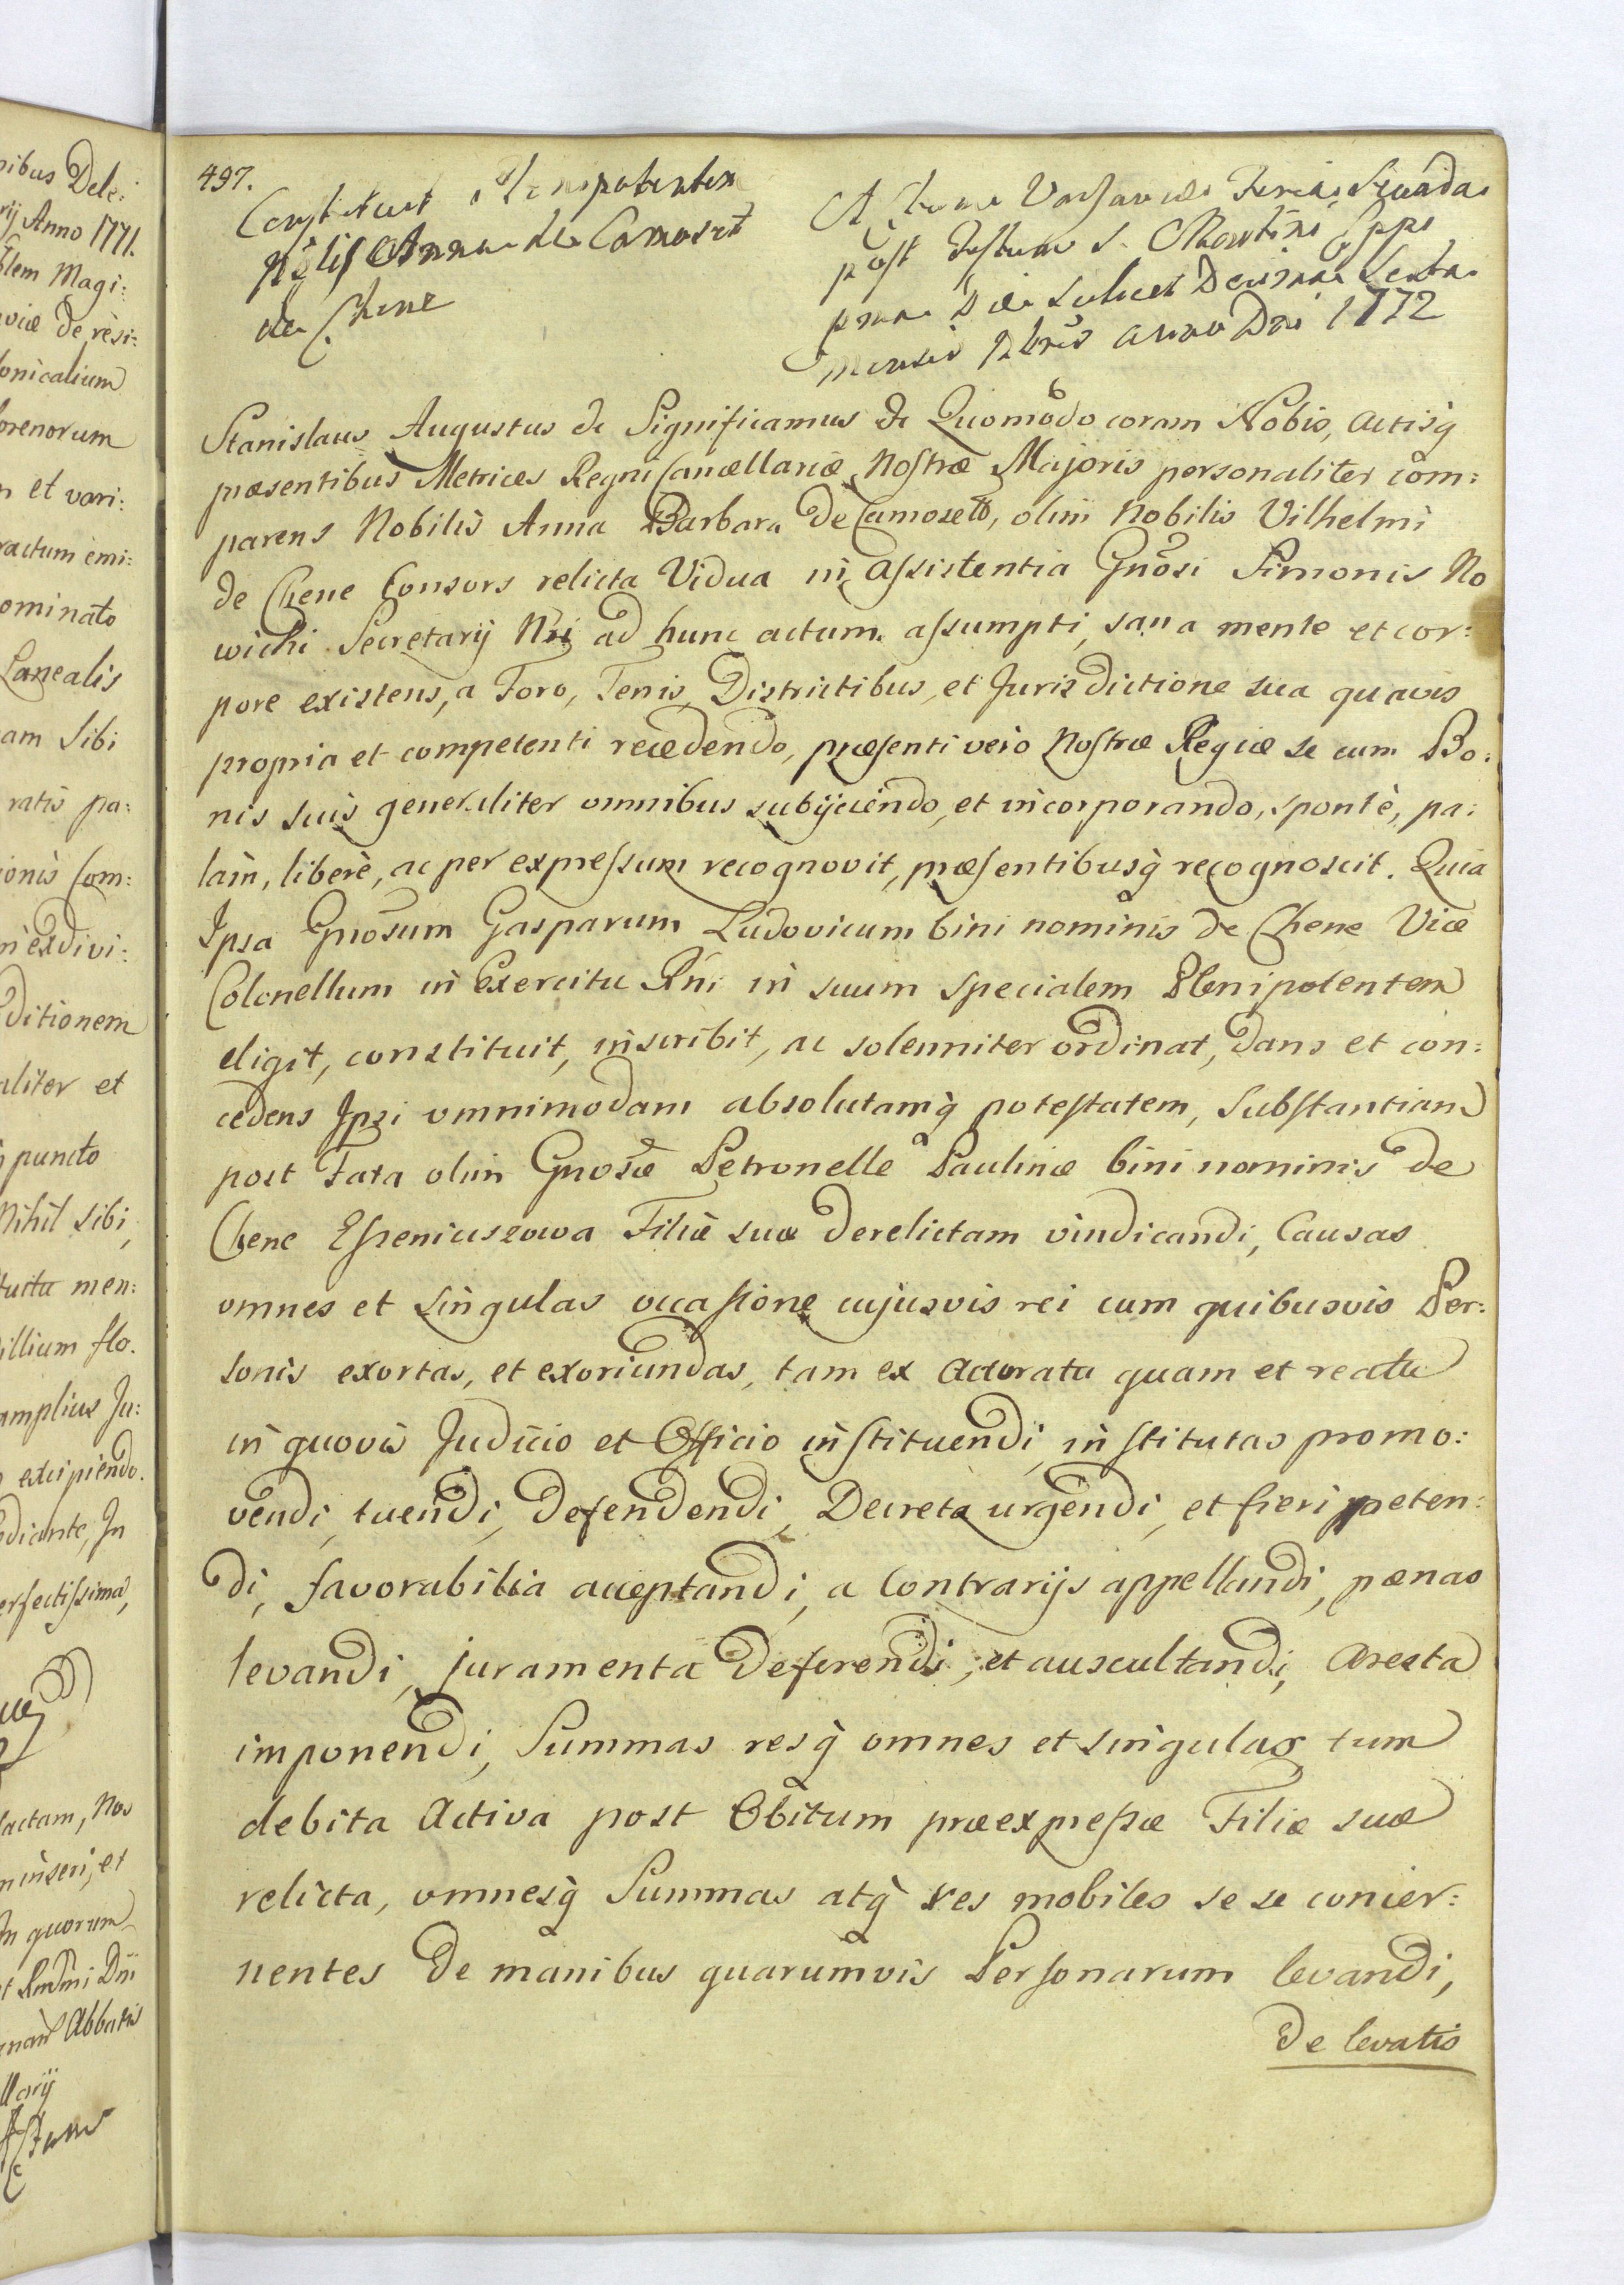 497.
Constituit Plenipotentem
Nobilis Anna de Camosett
de Chene
Actum Varsaviae Feria Secunda
post Festum S. Martini Eppi
prima Die scilicet Decima Sexta
mensis 9bris Anno Dni 1772
Stanislaus Augustus &c Significamus &c Quomodo coram Nobis, actisq̃
præsentibus Metrices Regni Cancellariæ Nostræ Majoris personaliter com:
parens Nobilis Anna Barbara de Camosett, olim Nobilis Vilhelmi
de Chene Consors relicta Vidua in assistentia Gnosi Simonis No
wicki Secretarij Nri ad hunc actum assumpti, sana mente et cor:
pore existens, a Foro, Terris, Districtibus, et Jurisdictione sua quavis
propria et competenti recedendo, præsenti vero Nostræ Regiæ se cum Bo:
nis suis generaliter omnibus subijciendo, et incorporando, sponte, pa:
lam, libere, ac per expressum recognovit, præsentibusq̃ recognoscit. Quia
Ipsa Gnosum Gasparum Ludovicum bini nominis de Chene Vice
Colonellum in Exercitu Rni in suum specialem Plenipotentem
eligit, constituit, inscribit, ac solenniter ordinat, dans et con:
cedens Ipsi omnimodam absolutamq̃ potestatem, Substantiam
post Fata olim Gnosæ Petronellæ Paulinæ bini nominis de
Chene Filiæ suæ derelictam vindicandi, Causas
omnes et singulas occasione cujusvis rei cum quibusvis Per:
sonis exortas, et exoriundas, tam ex actoratu quam et reatu
in quovis Judicio et Officio instituendi, institutas promo:
vendi, tuendi, defendendi, Decreta urgendi, et fieri peten:
di, favorabilia acceptandi, a Contrarijs appellandi, pænas
levandi, juramenta deferendi, et auscultandi, aresta
imponendi, Summas resq̃ omnes et singulas tum
debita Activa post Obitum præexpressæ Filiæ suæ
relicta, omnesq̃ Summas atq̃ res mobiles se se concer:
nentes de manibus quarumvis Personarum levandi,
de levatis